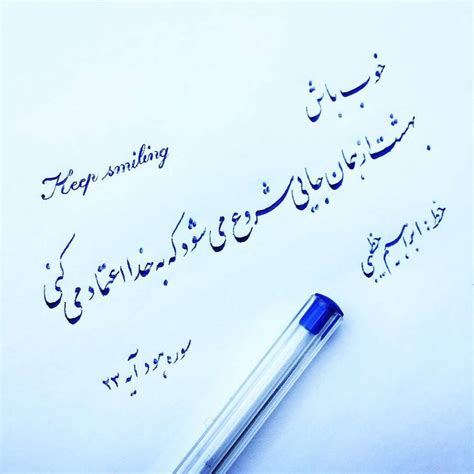 خوب باش
Keep smiling
بهشت از همان جایی شروع می شود که به خدا اعتماد می کنی
خط: ابراهیم خطیبی
سوره هود آیه ۲۳